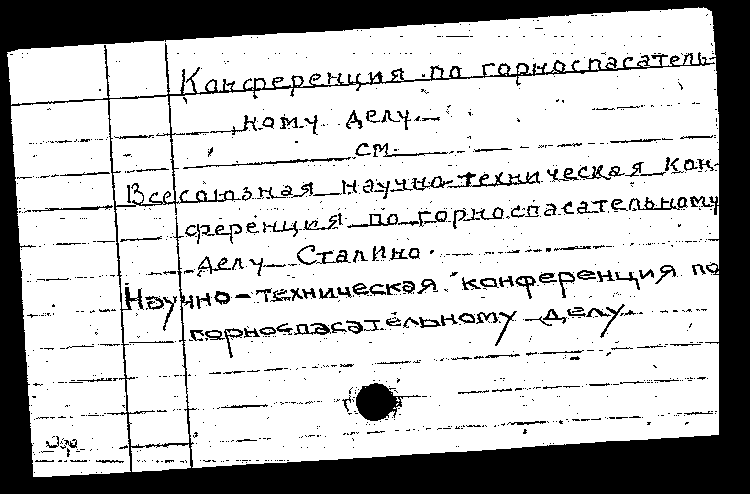 Конференция по горноспасатель-
ному делу.
см.
Всесоюзная научно-техническая кон-
ференция по горноспасательному
делу Сталино.
Научно-техническая конференция по
горноспасательному делу.